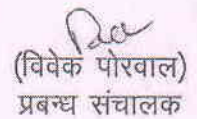 (विवेक पोरवाल)
प्रबन्ध संचालक